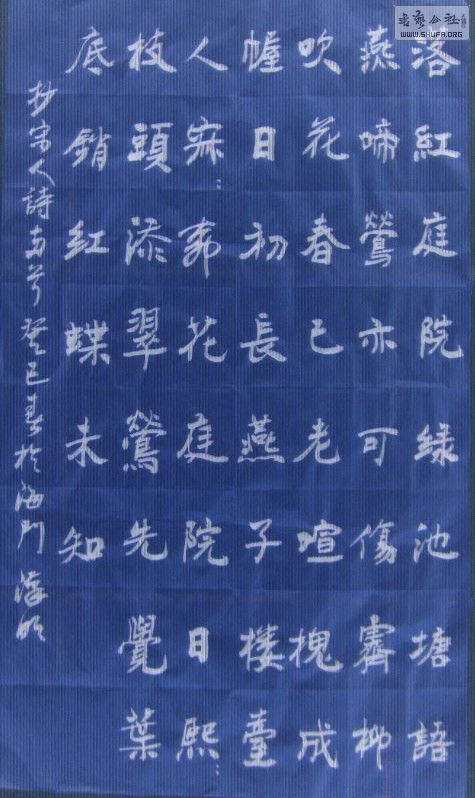 落紅庭院綠池塘語
燕啼鶯亦可傷霽柳
吹花春已老喧槐成
幄日初長燕子樓臺
人寂:花庭院日熙:
枝頭添翠鶯先覺葉
底銷紅蝶未知
抄宋人詩兩首癸巳春於海門
WWW.SHUFA.ORG